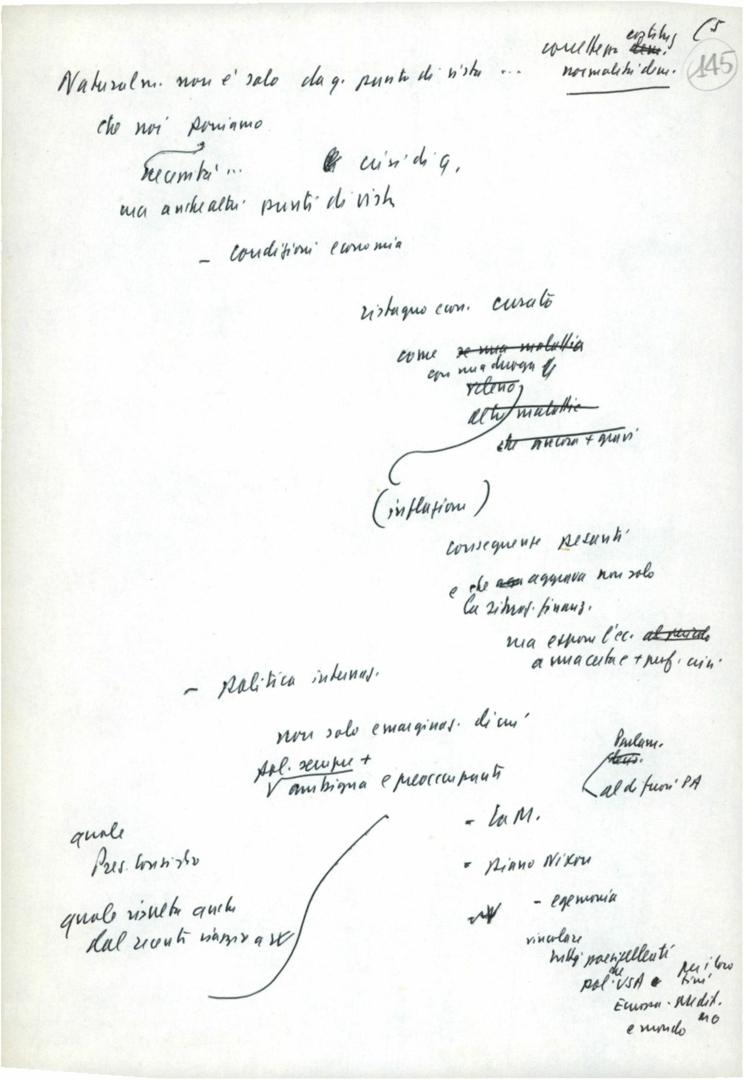 (5
145
correttezza costituz.
dem.
normalità dem.
Naturalm. non è solo da q. punto di vista ...
che noi poniamo
necessità ... crisi di g.
ma anche altri punti di vista
- condizioni economia
ristagno econ. curato
come se una malattia
con una droga
veleno
altre malattie
che ancora + gravi
(inflazione)
conseguenze pesanti
e che aggrava non solo
la situaz. finanz.
ma espone l'ec. al pericolo
a una acuta e + prof. crisi
- politica internaz.
non solo emarginaz. di cui
pol. sempre +
ambigua e preoccupanti
Parlam.
al di fuori PA
quale
Pres. Consiglio
quale risulta anche
dal recente viaggio a W
- La M.
- piano Nixon
- egemonia
vincolare
tutti paesi
che
pol. USA per i loro
fini
Europa - Medit.
e mondo